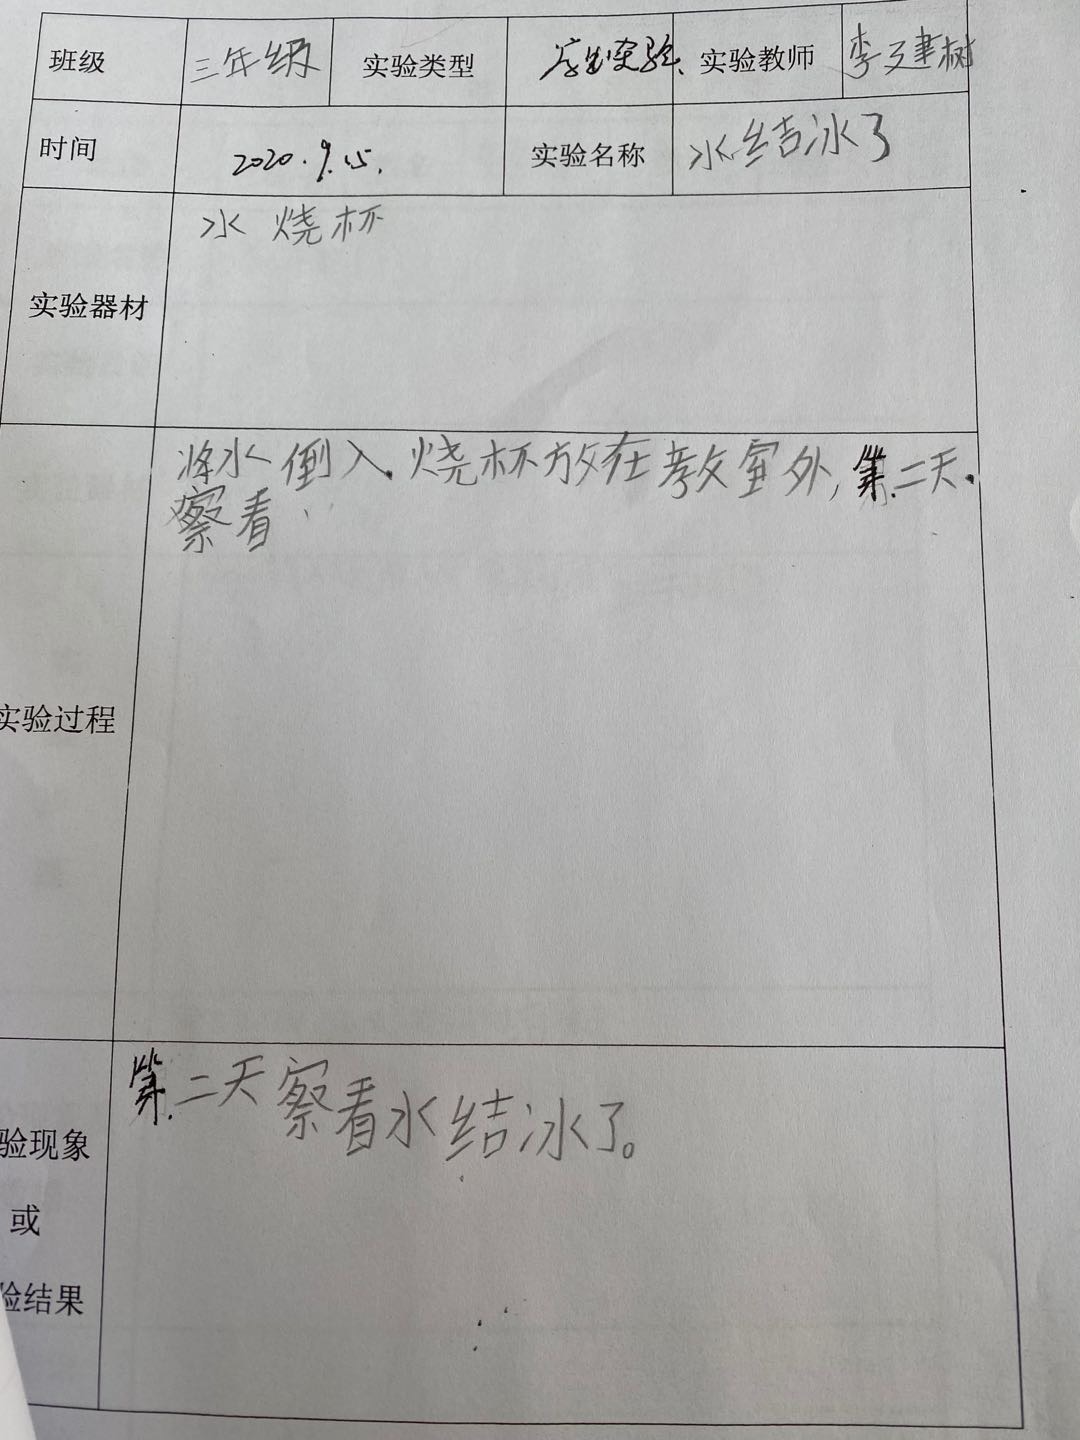 班级 三年级 实验类型 学生实验 实验教师 李建树
时间 2020.9.15. 实验名称 水结冰了
水 烧杯
实验器材
将水倒入烧杯放在教室外,第二天
察看
实验过程
第二天察看水结冰了。
验现象
或
验结果